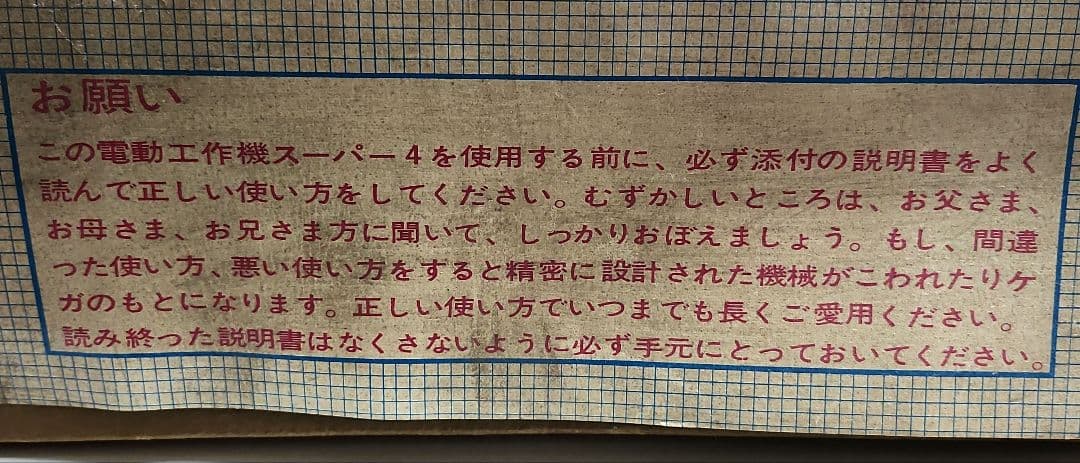 お願い
この電動工作機スーパー4を使用する前に、必ず添付の説明書をよく
読んで正しい使い方をしてください。むずかしいところは、お父さま、
お母さま、お兄さま方に聞いて、しっかりおぼえましょう。もし、間違
った使い方、悪い使い方をすると精密に設計された機械がこわれたりケ
ガのもとになります。正しい使い方でいつまでも長くご愛用ください。
読み終った説明書はなくさないように必ず手元にとっておいてください。